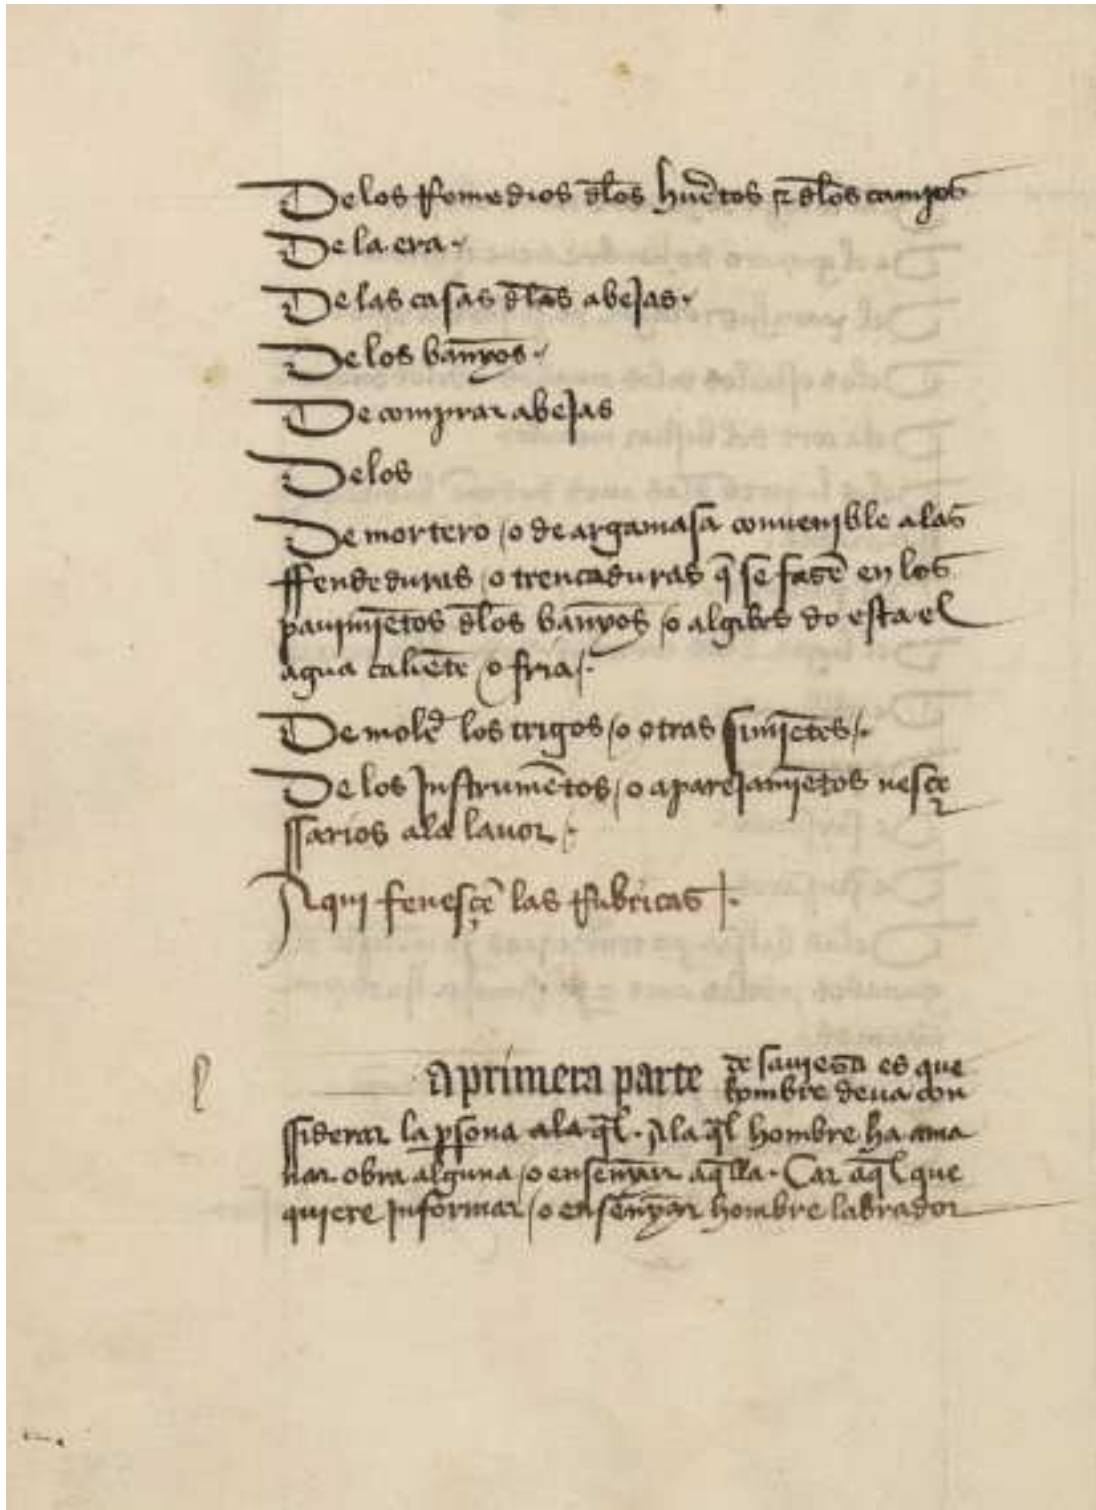 De los Remedios dlos huertos ⁊ dlos campos
De la era.
De las casas dlas abejas.
De los banyos.
De comprar abejas
De los
De mortero / o de argamasa convenible a las
ffendeduras / o trencaduras q̃ se fazẽ en los
pavimiẽtos dlos banyos / o algibes do esta el
agua caliẽte o fria /.
De molẽ los trigos / o otras simiẽtes /.
De los Instrumẽtos / o aparejamiẽtos nesçe
ssarios ala lavor /.
Aqui fenesçẽ las Rubricas.
l
a primera parte de savieza es que
hombre deua con
ssiderar la p̱sona ala q̃l. Ala q̃l hombre ha ama
nar obra alguna / o ensenyar aq̃lla. Car aq̃l que
quiere Informar / o ensenyar hombre labrador